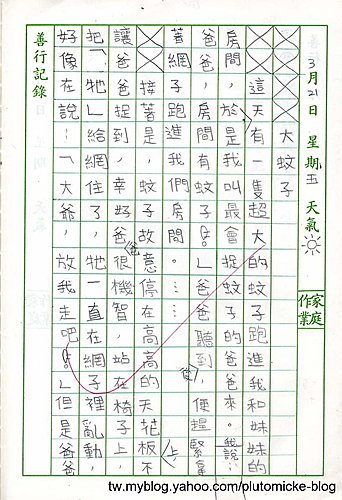 3月21日 星期五 天氣
家庭作業
大蚊子
這天有一隻超大的蚊子跑進我和妹妹的
房間,於是我叫最會捉蚊子的爸爸來。我說:
「爸爸,房間有蚊子!」爸爸聽到後,便趕緊拿
著網子,跑進我們房間……
接著是,蚊子故意停在高高的天花板上不
讓爸爸捉到,幸好爸爸很機智,站在椅子上,
把「牠」給網住了,牠一直在網子裡亂動,
好像在說:「大爺,放我走吧!」但是爸爸
善行記錄
tw.myblog.yahoo.com/plutomicke-blog